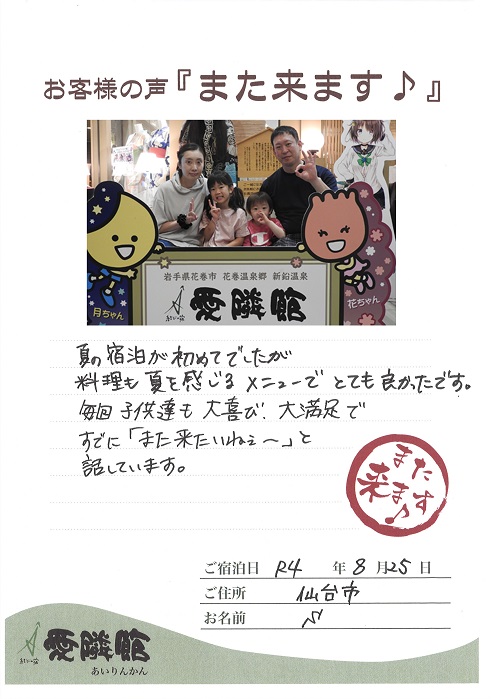 お客様の声『また来ます♪』
岩手県花巻市 花巻温泉郷 新鉛温泉
愛隣館
月ちゃん
花ちゃん
夏の宿泊が初めてでしたが
料理も夏を感じるメニューでとても良かったです。
毎回子供達も大喜び、大満足で
すでに「また来たいねぇ〜」と
話しています。
また来ます♪
ご宿泊日 R4 年 8 月 25 日
ご住所 仙台市
お名前
愛隣館
あいりんかん